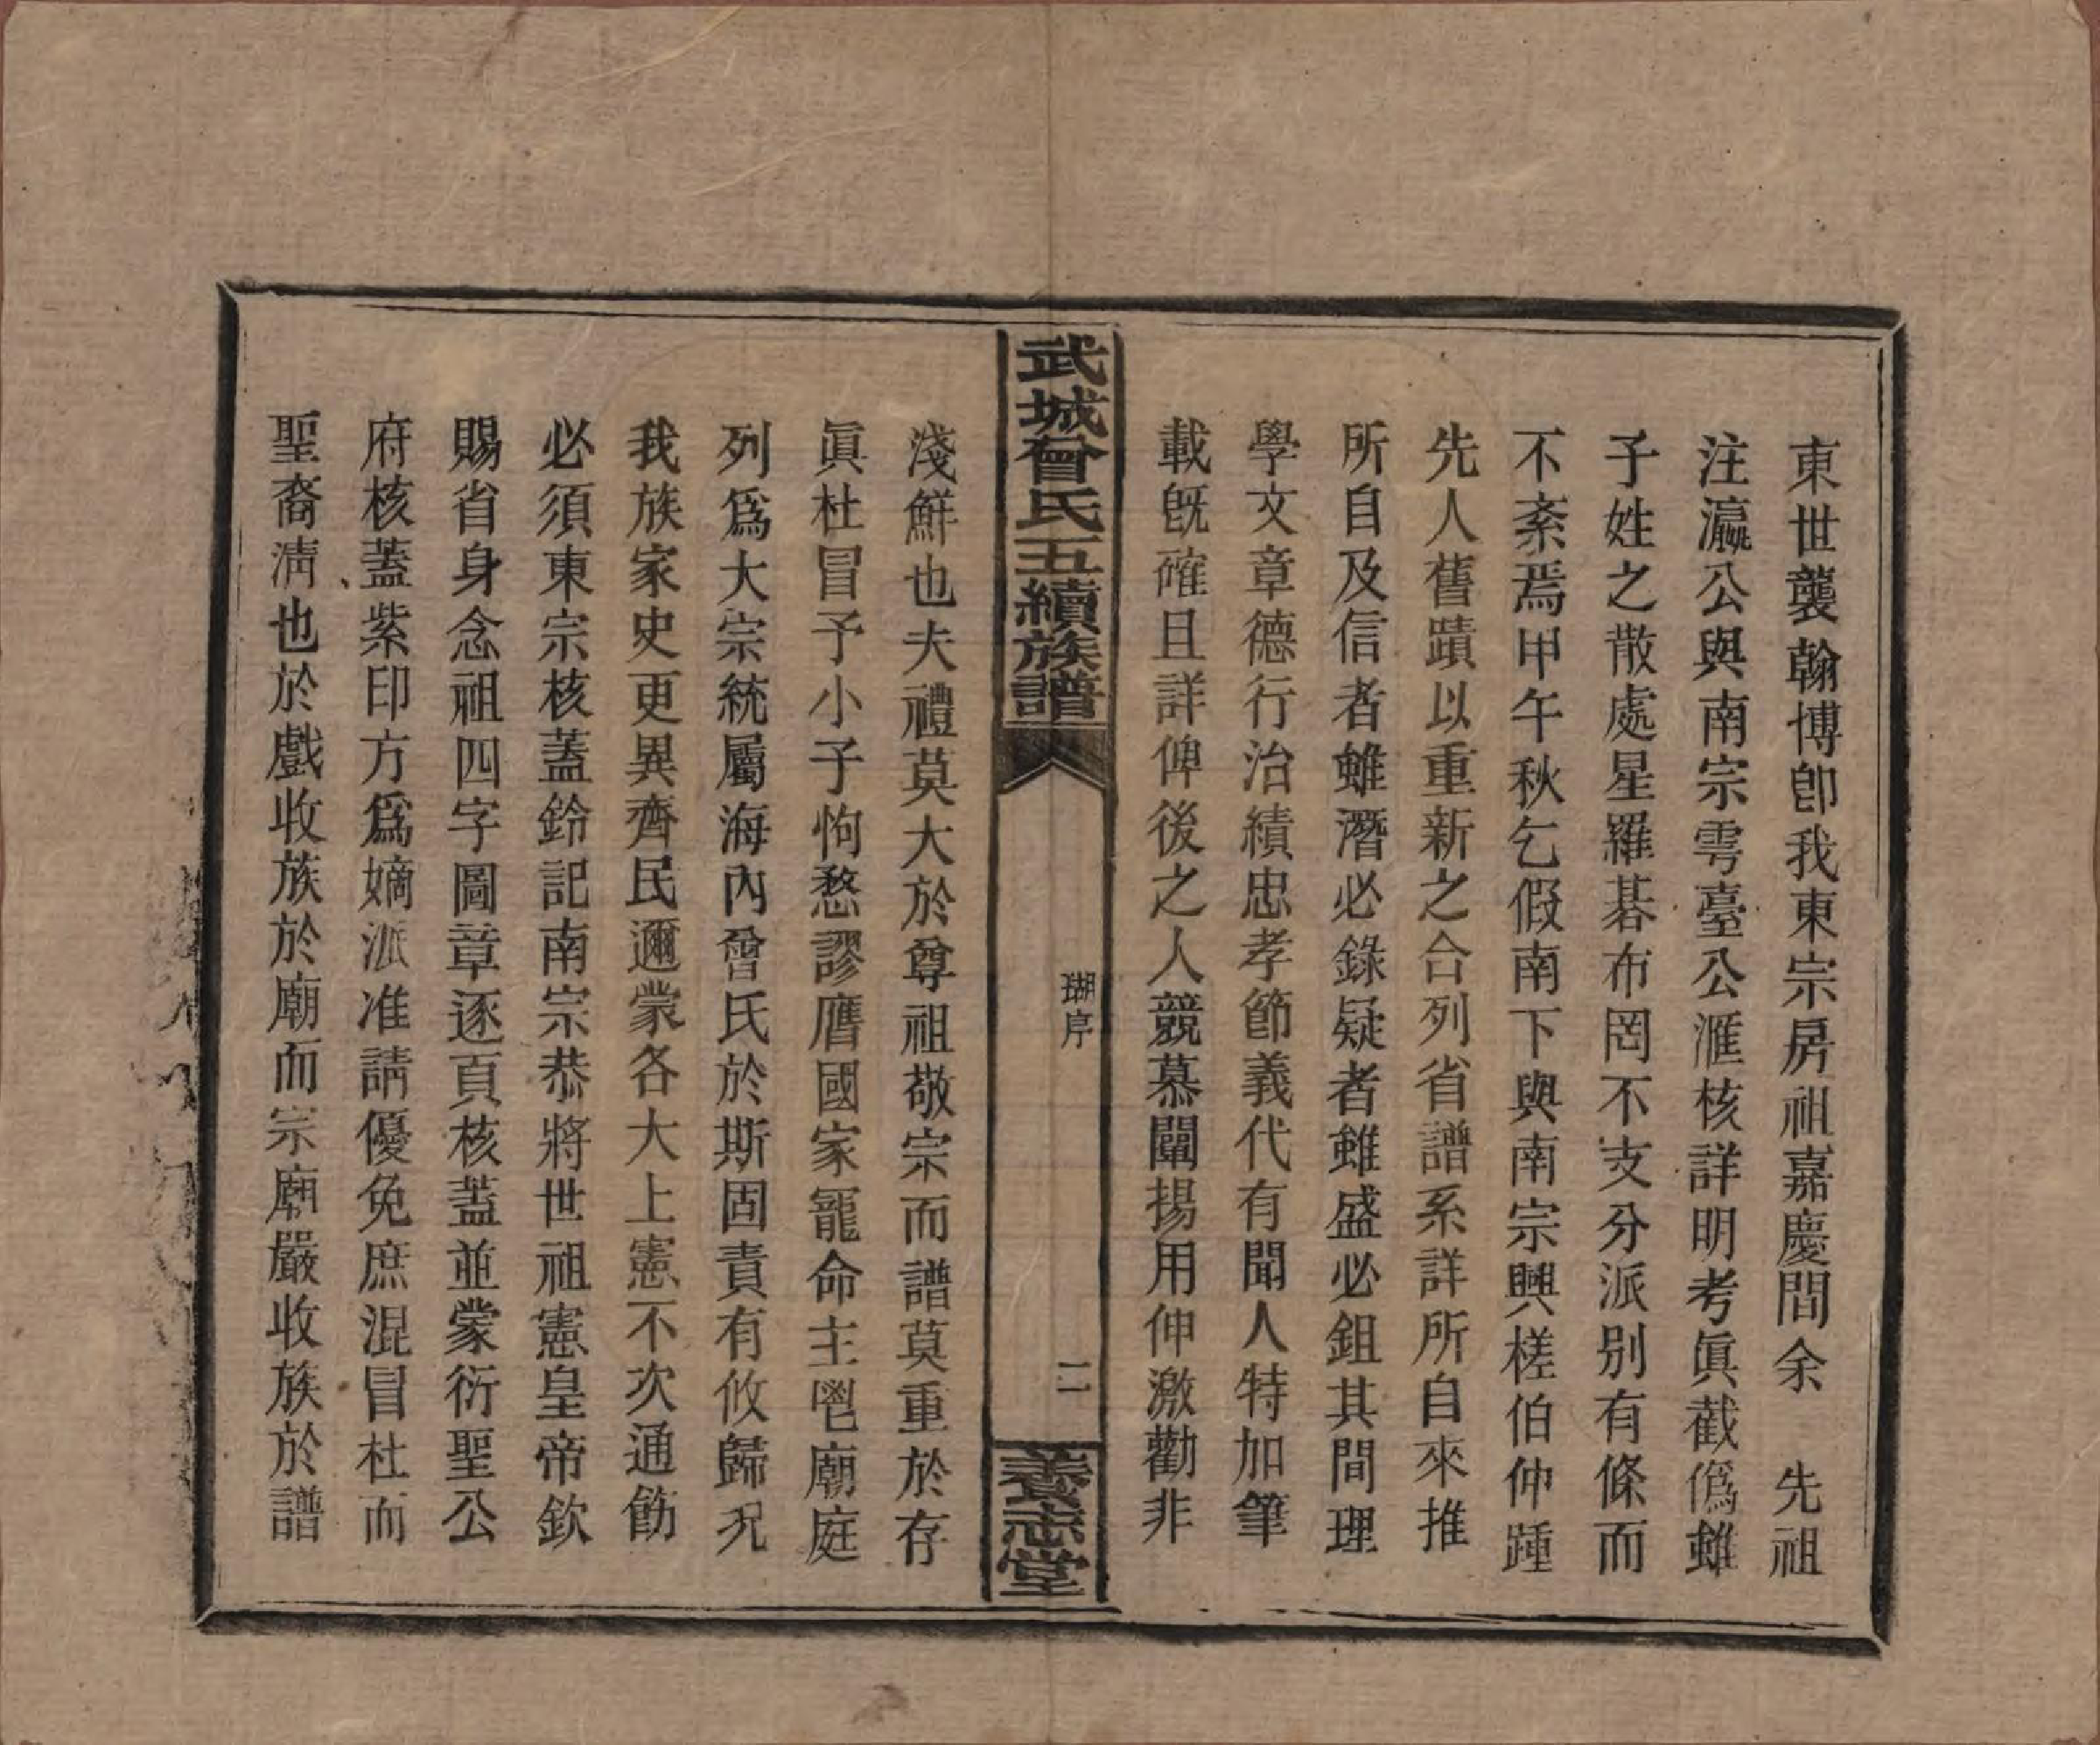 東世襲翰博卽我東宗房祖嘉慶間余　先祖
注瀛公與南宗雩臺公滙核詳明考眞截僞雖
子姓之散處星羅碁布罔不支分派别有條而
不紊焉甲午秋乞假南下與南宗興槎伯仲踵
先人舊蹟以重新之合列省譜系詳所自來推
所自及信者雖潛必錄疑者雖盛必鉏其間理
學文章德行治績忠孝節義代有聞人特加筆
載旣確且詳俾後之人競慕闡揚用伸激勸非
武城曾氏五續族譜
瑚序
二
養志堂
淺鮮也夫禮莫大於尊祖敬宗而譜莫重於存
眞杜冒予小子恂愗謬膺國家寵命主鬯廟庭
列爲大宗統屬海內曾氏於斯固責有攸歸况
我族家史更異齊民邇蒙各大上憲不次通飭
必須東宗核蓋鈴記南宗恭將世祖憲皇帝欽
賜省身念祖四字圖章逐頁核蓋並蒙衍聖公
府核蓋紫印方爲嫡派准請優免庶混冒杜而
聖裔淸也於戲收族於廟而宗廟嚴收族於譜